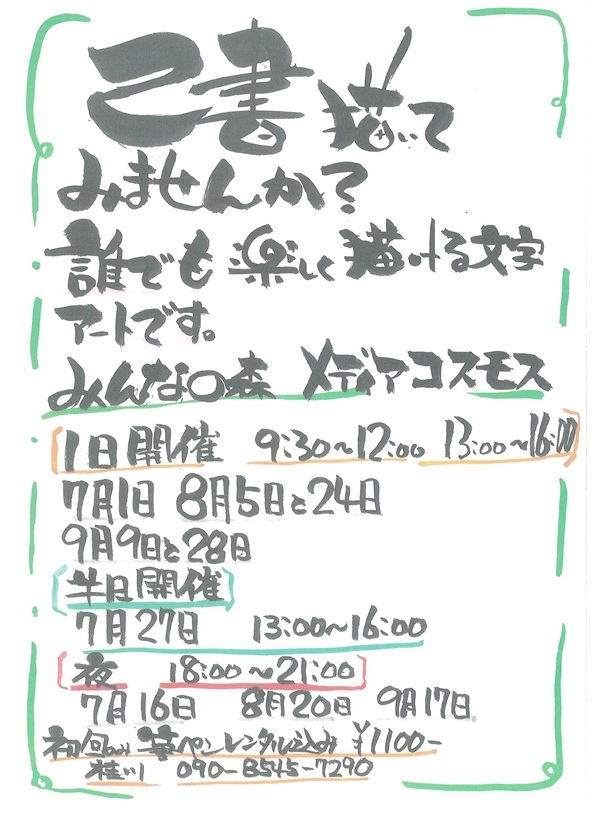 己書 描いて
みませんか?
誰でも 楽しく 描ける文字
アートです。
みんなの森 メディアコスモス
1日開催 9:30〜12:00 13:00〜16:00
7月1日 8月5日と24日
9月9日と28日
半日開催
7月27日 13:00〜16:00
夜 18:00〜21:00
7月16日 8月20日 9月17日
初回のみ 筆ペンレンタル込み ¥1100-
桂川 090-8545-7290